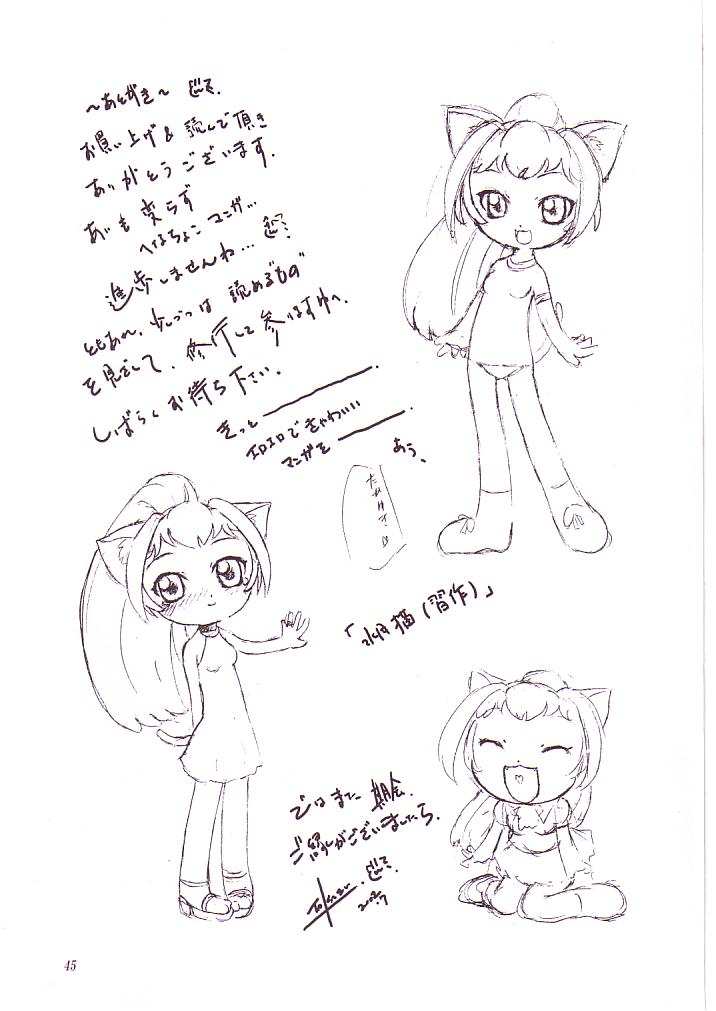 ～あとがき～
お買い上げ&読んで頂き
ありがとうございます.
あいも変らず
へなちょこマンガ…
進歩しませんね…
ともあれ、少しづつは読める"もの"
を見ざして、修行して参りますゆへ、
しばらくお待ち下さい.
きっと
エロエロできゃわいい
マンガを
あう、
「猫(習作)」
ではまた機会、
ご縁がございましたら.
45